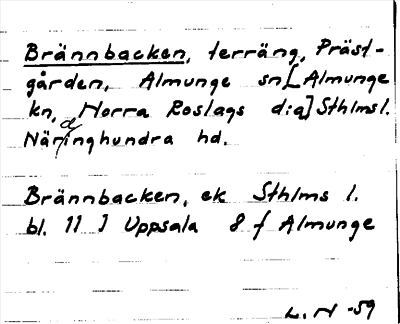 Brännbacken, terräng, Präst-
gården, Almunge sn [Almunge
kn, Norra Roslags d:a] Sthlms l.
Närdinghundra hd.
Brännbacken, ek Sthlms l.
bl. 11 I Uppsala 8 f Almunge
L. N -59